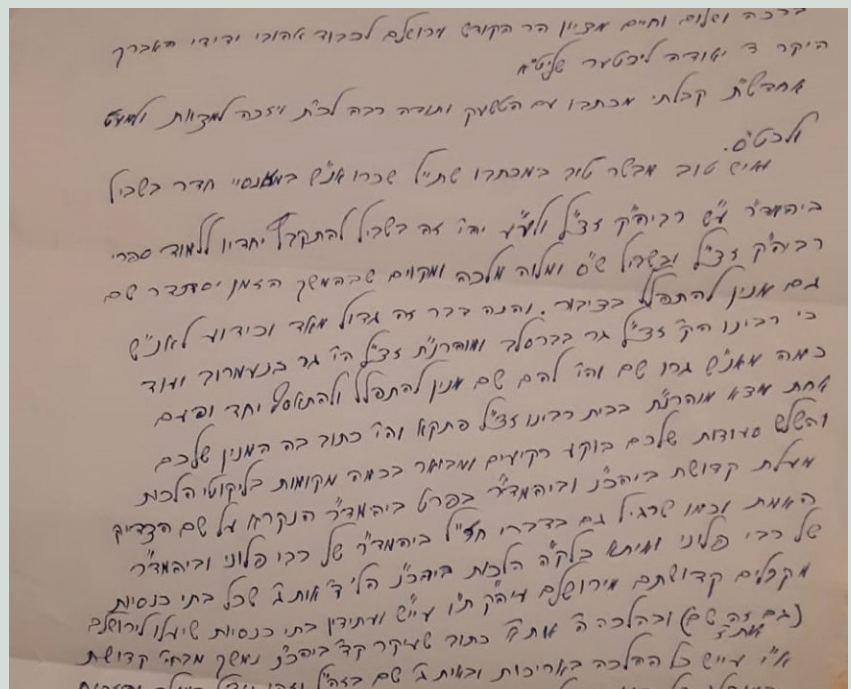 ברכה ושלום וחיים מציון הר הקודש ירושלם לכבוד אהובי ידידי האברך
היקר ר' יאודה ליכטער שליט"א
אחדש"ת קבלתי מכתבו עם הטשעק ותודה רבה לכ"ת ויזכה למצות ולמעט
ולכט"ס.
ומאיש טוב מבשר טוב במכתבו שת"ל שכרו אנ"ש במאנסי חדר בשביל
ביהמד"ר ע"ש רביה"ק זצ"ל ולע"ע יהי' זה בשביל להתקבץ יחדיו ללמוד ספרי
רביה"ק זצ"ל ובשביל ש"ס ומלוה מלכה ומקוים שבהמשך הזמן יסתדר שם
גם מנין להתפלל בציבור. והנה דבר זה גדול מאד וכידוע לאנ"ש
כי רבינו הק' זצ"ל גר בברסלב ומוהרנ"ת זצ"ל הי' גר בנעמרוב ועוד
כמה מאנ"ש גרו שם והי' להם שם מנין להתפלל ולהתאסף יחד ופעם
אחת מצא מוהרנ"ת בבית רבינו זצ"ל פתקא והי' כתוב בה המנין שלכם
והשלש סעודות שלכם בוקע רקיעים ומבואר בכמה מקומות בליקוטי הלכות
מעלת קדושת ביהכ"נ וביהמד"ר בפרט ביהמד"ר הנקרא על שם הצדיק
האמת וכמו שרגיל גם בדברי חז"ל ביהמד"ר של רבי פלוני וביהמד"ר
של רבי פלוני ואיתא בלק"ה הלכות ביהכ"נ הל' ד' אות ג' שכל בתי כנסיות
מקבלים קדושתם מירושלם עיה"ק ת"ו עיי"ש ועתידין בתי כנסיות שיעלו לירושלם
(גם זה שם) ובהלכה ה' אות א' כתוב שעיקר קד' ביהכ"נ נמשך מבחי' קדושת
א"י עיי"ש כל ההלכה באריכות ובאות ג' שם בזה"ל